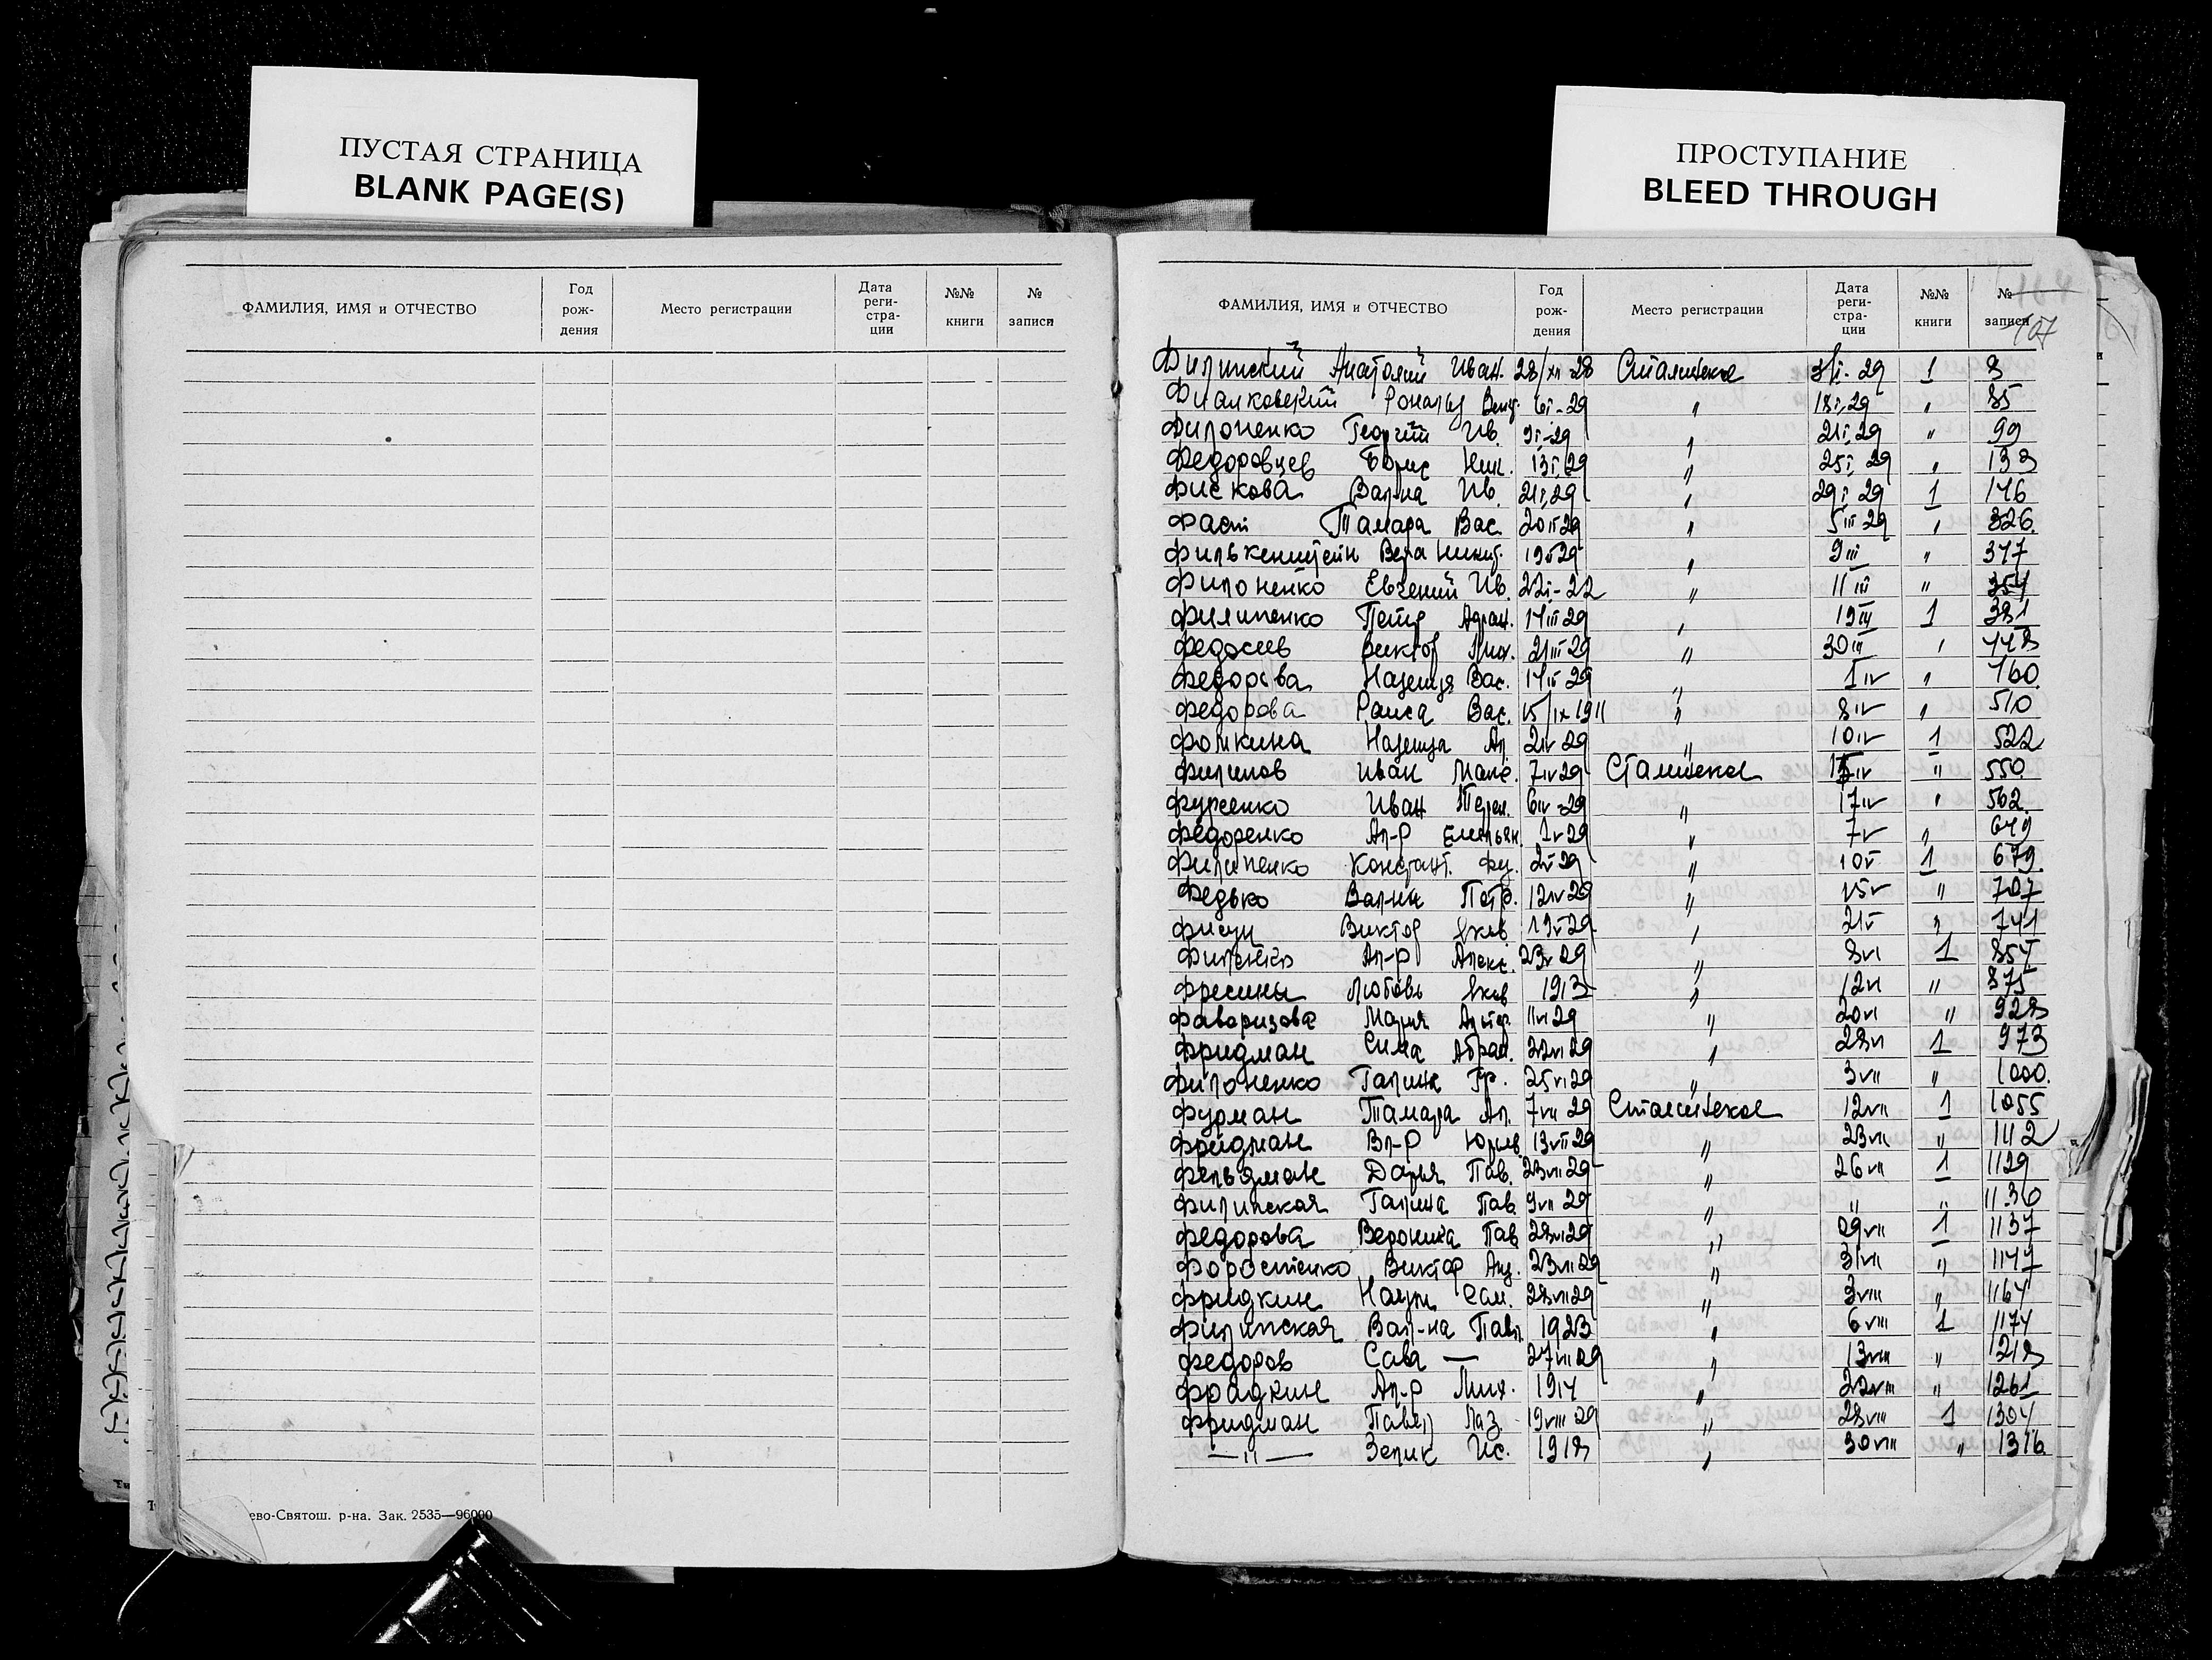 ПУСТАЯ СТРАНИЦА
BLANK PAGE(S)
ПРОСТУПАНИЕ
BLEED THROUGH
ФАМИЛИЯ, ИМЯ и ОТЧЕСТВО Год рож- дения Место регистрации Дата реги- стра- ции №№ книги № записи
ево-Святош. р-на. Зак. 2535—96000
ФАМИЛИЯ, ИМЯ и ОТЧЕСТВО Год рож- дения Место регистрации Дата реги- стра- ции №№ книги № записи
107
Филинский Анатолий Иван. 28/XII-28 Сталинское 3/I-29 1 8
Фиалковский Рональд 6I-29 " 18I,29 " 85
Филоненко Георгий Ив. 9I-29 " 21I,29 " 99
Федоровцев Борис Ник. 13I,29 " 25I 29 " 138
Фискова Вал-на Ив. 21I,29 " 29I 29 1 146
Фаст Тамара Вас. 20II29 " 5III-29 " 326.
Вера " 9III " 347
Филоненко Евгений Ив. 22I-22 " 11III " 354
Филипенко Петр 14III29 " 19III 1 381
Федосеев Виктор Мих. 21III29 " 30III " 448
Федорова Надежда Вас. " 1IV " 460.
Федорова Раиса Вас. 15/IX1911 " 8IV " 510
Фомкина Надежда Ал 2IV29 " 10IV 1 522
Филипов Иван Макс. 7IV29 Сталинское " 550
Фурсенко Иван Терен. 6IV-29 " 17IV " 562.
Федоренко Ал-р Емельян. 1V29 " 7V " 649
Филипенко Констант. 2V29 " 10V 1 679.
Федько Вал-на Петр. 12IV29 " 15V " 707
Фисун Виктор Яков. 19V29 " 21V " 741
Ал-р Алекс. 23V29 " 8VI 1 854
Любовь Яков 1913 " 12VI " 875
Фаваризова Мария 11VI29 " 20VI " 928
Фридман Сима Абрам. 22VI29 " 28VI 1 973
Филоненко Галина Гр. 25VI29 " 3VII " 1000.
Фурман Тамара Ал. 7VII29 Сталинское 12VII 1 1055
Фридман Вл-р Юрьев. 13VII29 " 23VII " 1112
Фельдман Дарья Пав. 23VII29 " 26VII 1 1129
Филипская Галина Пав. 9VII29 " " " 1130
Федорова Вероника Пав " 29VII 1 1137
Форостенко Виктор Анд. 23VII29 " 31VII " 1147
Фридкин Наум Сам. 28VII29 " 3VIII " 1164
Филипская Вал-на Павл. 1923 " 6VIII 1 1174
Федоров Сава — 27VII29 " 13VIII " 1218
Фрадкин Ал-р Мих. 1914 " 22VIII " 1261
Фридман Павел Лаз. 19VIII29 " 28VIII 1 1304
—"— Зелик Ис. 1918 " 30VIII " 1316.